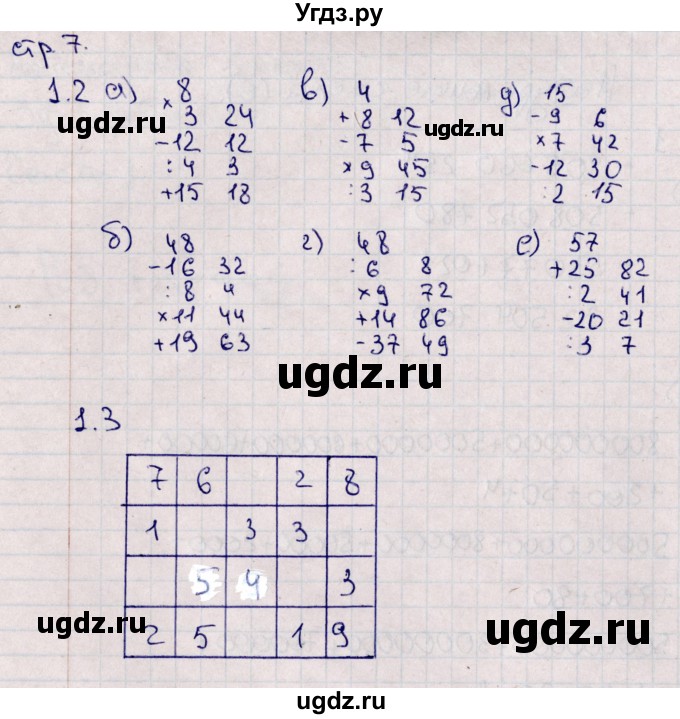 Угдз.ру
стр 7.
1.2 а) 8
× 3 24
-12 12
:4 3
+15 18
в) 4
+8 12
-7 5
×9 45
:3 15
д) 15
-9 6
×7 42
-12 30
:2 15
б) 48
-16 32
:8 4
×11 44
+19 63
г) 48
:6 8
×9 72
+14 86
-37 49
е) 57
+25 82
:2 41
-20 21
:3 7
1.3
7 6 2 8
1 3 3
5 4 3
2 5 1 9
ugdz.ru
ugdz.ru
ugdz.ru
ugdz.ru
ugdz.ru
ugdz.ru
ugdz.ru
ugdz.ru